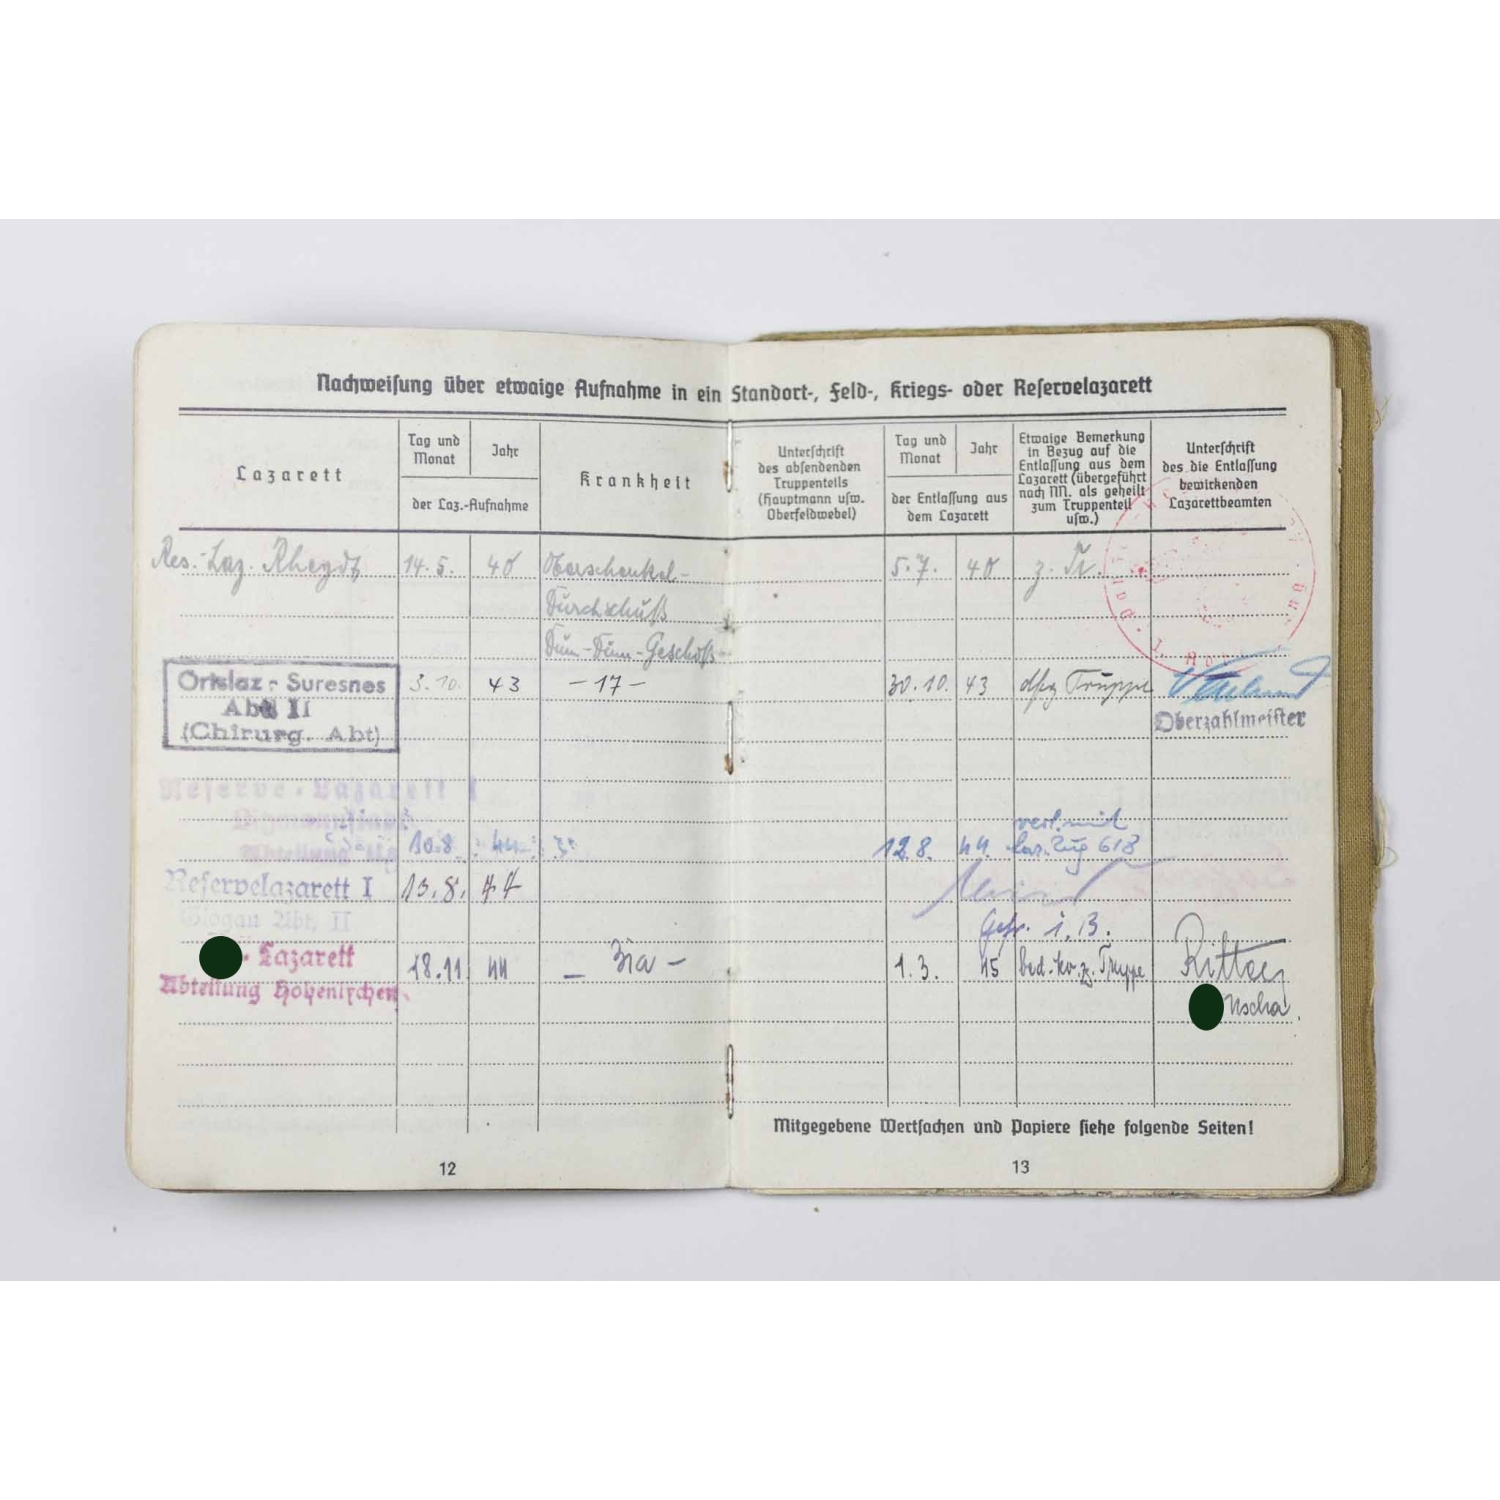 Nachweisung über etwaige Aufnahme in ein Standort-, Feld-, Kriegs- oder Reservelazarett
Lazarett
Tag und Monat
Jahr
der Laz.-Aufnahme
Krankheit
Unterschrift
des absendenden
Truppenteils
(Hauptmann usw.
Oberfeldwebel)
Tag und Monat
Jahr
der Entlassung aus
dem Lazarett
Etwaige Bemerkung
in Bezug auf die
Entlassung aus dem
Lazarett (übergeführt
nach NN. als geheilt
zum Truppenteil
usw.)
Unterschrift
des die Entlassung
bewirkenden
Lazarettbeamten
Res.-Laz. Rheydt 14.5. 40 Oberschenkel- 5.7. 40 z. Tr.
Durchschuß
Dum-Dum-Geschoß
Ortslaz - Suresnes 3.10. 43 - 17 - 30.10. 43 Truppe
Abt II
(Chirurg. Abt)
Oberzahlmeister
Reserve-Lazarett I
Abteilung 10.8. 44. 12.8. 44. verl. mit
Laz. Zug 613
Reservelazarett I 13.8. 44
Glogau Abt. II
Gefr. i.B.
Lazarett 18.11 44 - - 1.3. 45 bed. kv. z. Truppe Ritter
Abteilung Hohenlychen
Uscha.
Mitgegebene Wertsachen und Papiere siehe folgende Seiten!
12
13